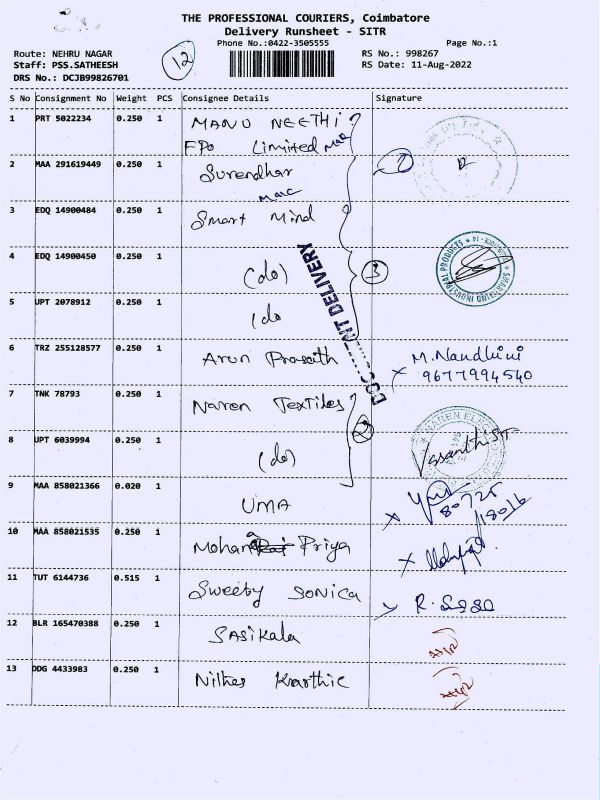 THE PROFESSIONAL COURIERS, Coimbatore
Delivery Runsheet - SITR
Phone No.:0422-3505555 Page No.:1
Route: NEHRU NAGAR RS No.: 998267
Staff: PSS.SATHEESH 12 RS Date: 11-Aug-2022
DRS No.: DCJB99826701
S No Consignment No Weight PCS Consignee Details Signature
1 PRT 5022234 0.250 1 MANU NEETHI
FPO Limited
2 MAA 291619449 0.250 1 Surendhar
3 EDQ 14900484 0.250 1 Smart Mind
4 EDQ 14900450 0.250 1 (do) 3
DOCUMENT DELIVERY
5 UPT 2078912 0.250 1 (do
6 TRZ 255128577 0.250 1 Arun Prasath M. Nandhini
9677994540
7 TNK 78793 0.250 1 Naren Textiles
8 UPT 6039994 0.250 1 (do) 2
9 MAA 858021366 0.020 1 UMA
80725
18016
10 MAA 858021535 0.250 1 Mohana Priya
11 TUT 6144736 0.515 1 Sweety Sonica
12 BLR 165470388 0.250 1 Sasikala
13 DDG 4433983 0.250 1 Nithes Karthic